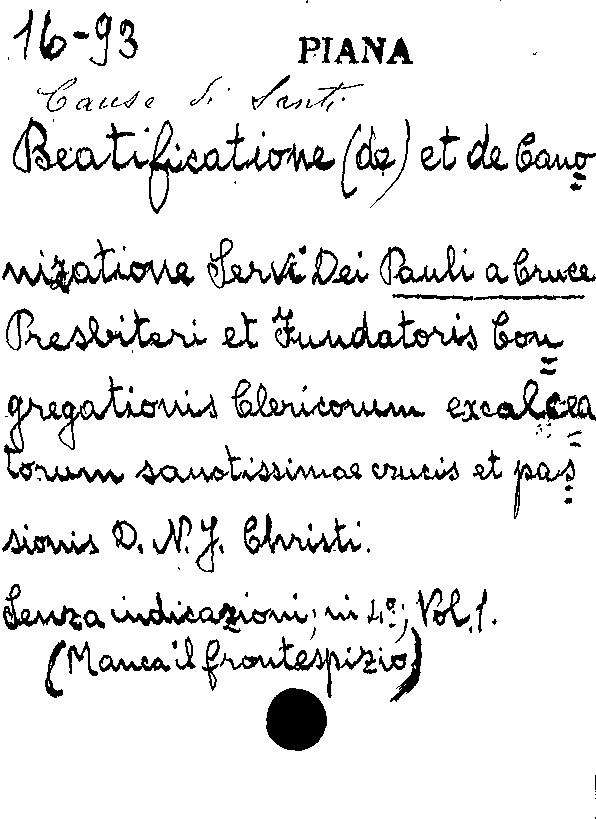 16-93 PIANA
Cause di Santi
Beatificatione (de) et de Cano=
nizatione Servi Dei Pauli a Cruce
Presbiteri et Fundatoris Con=
gregationis Clericorum excalcea=
torum sanctissimae crucis et pas=
sionis D. N. J. Christi.
Senza indicazioni; in 4º; Vol. 1.
(Manca il frontespizio)